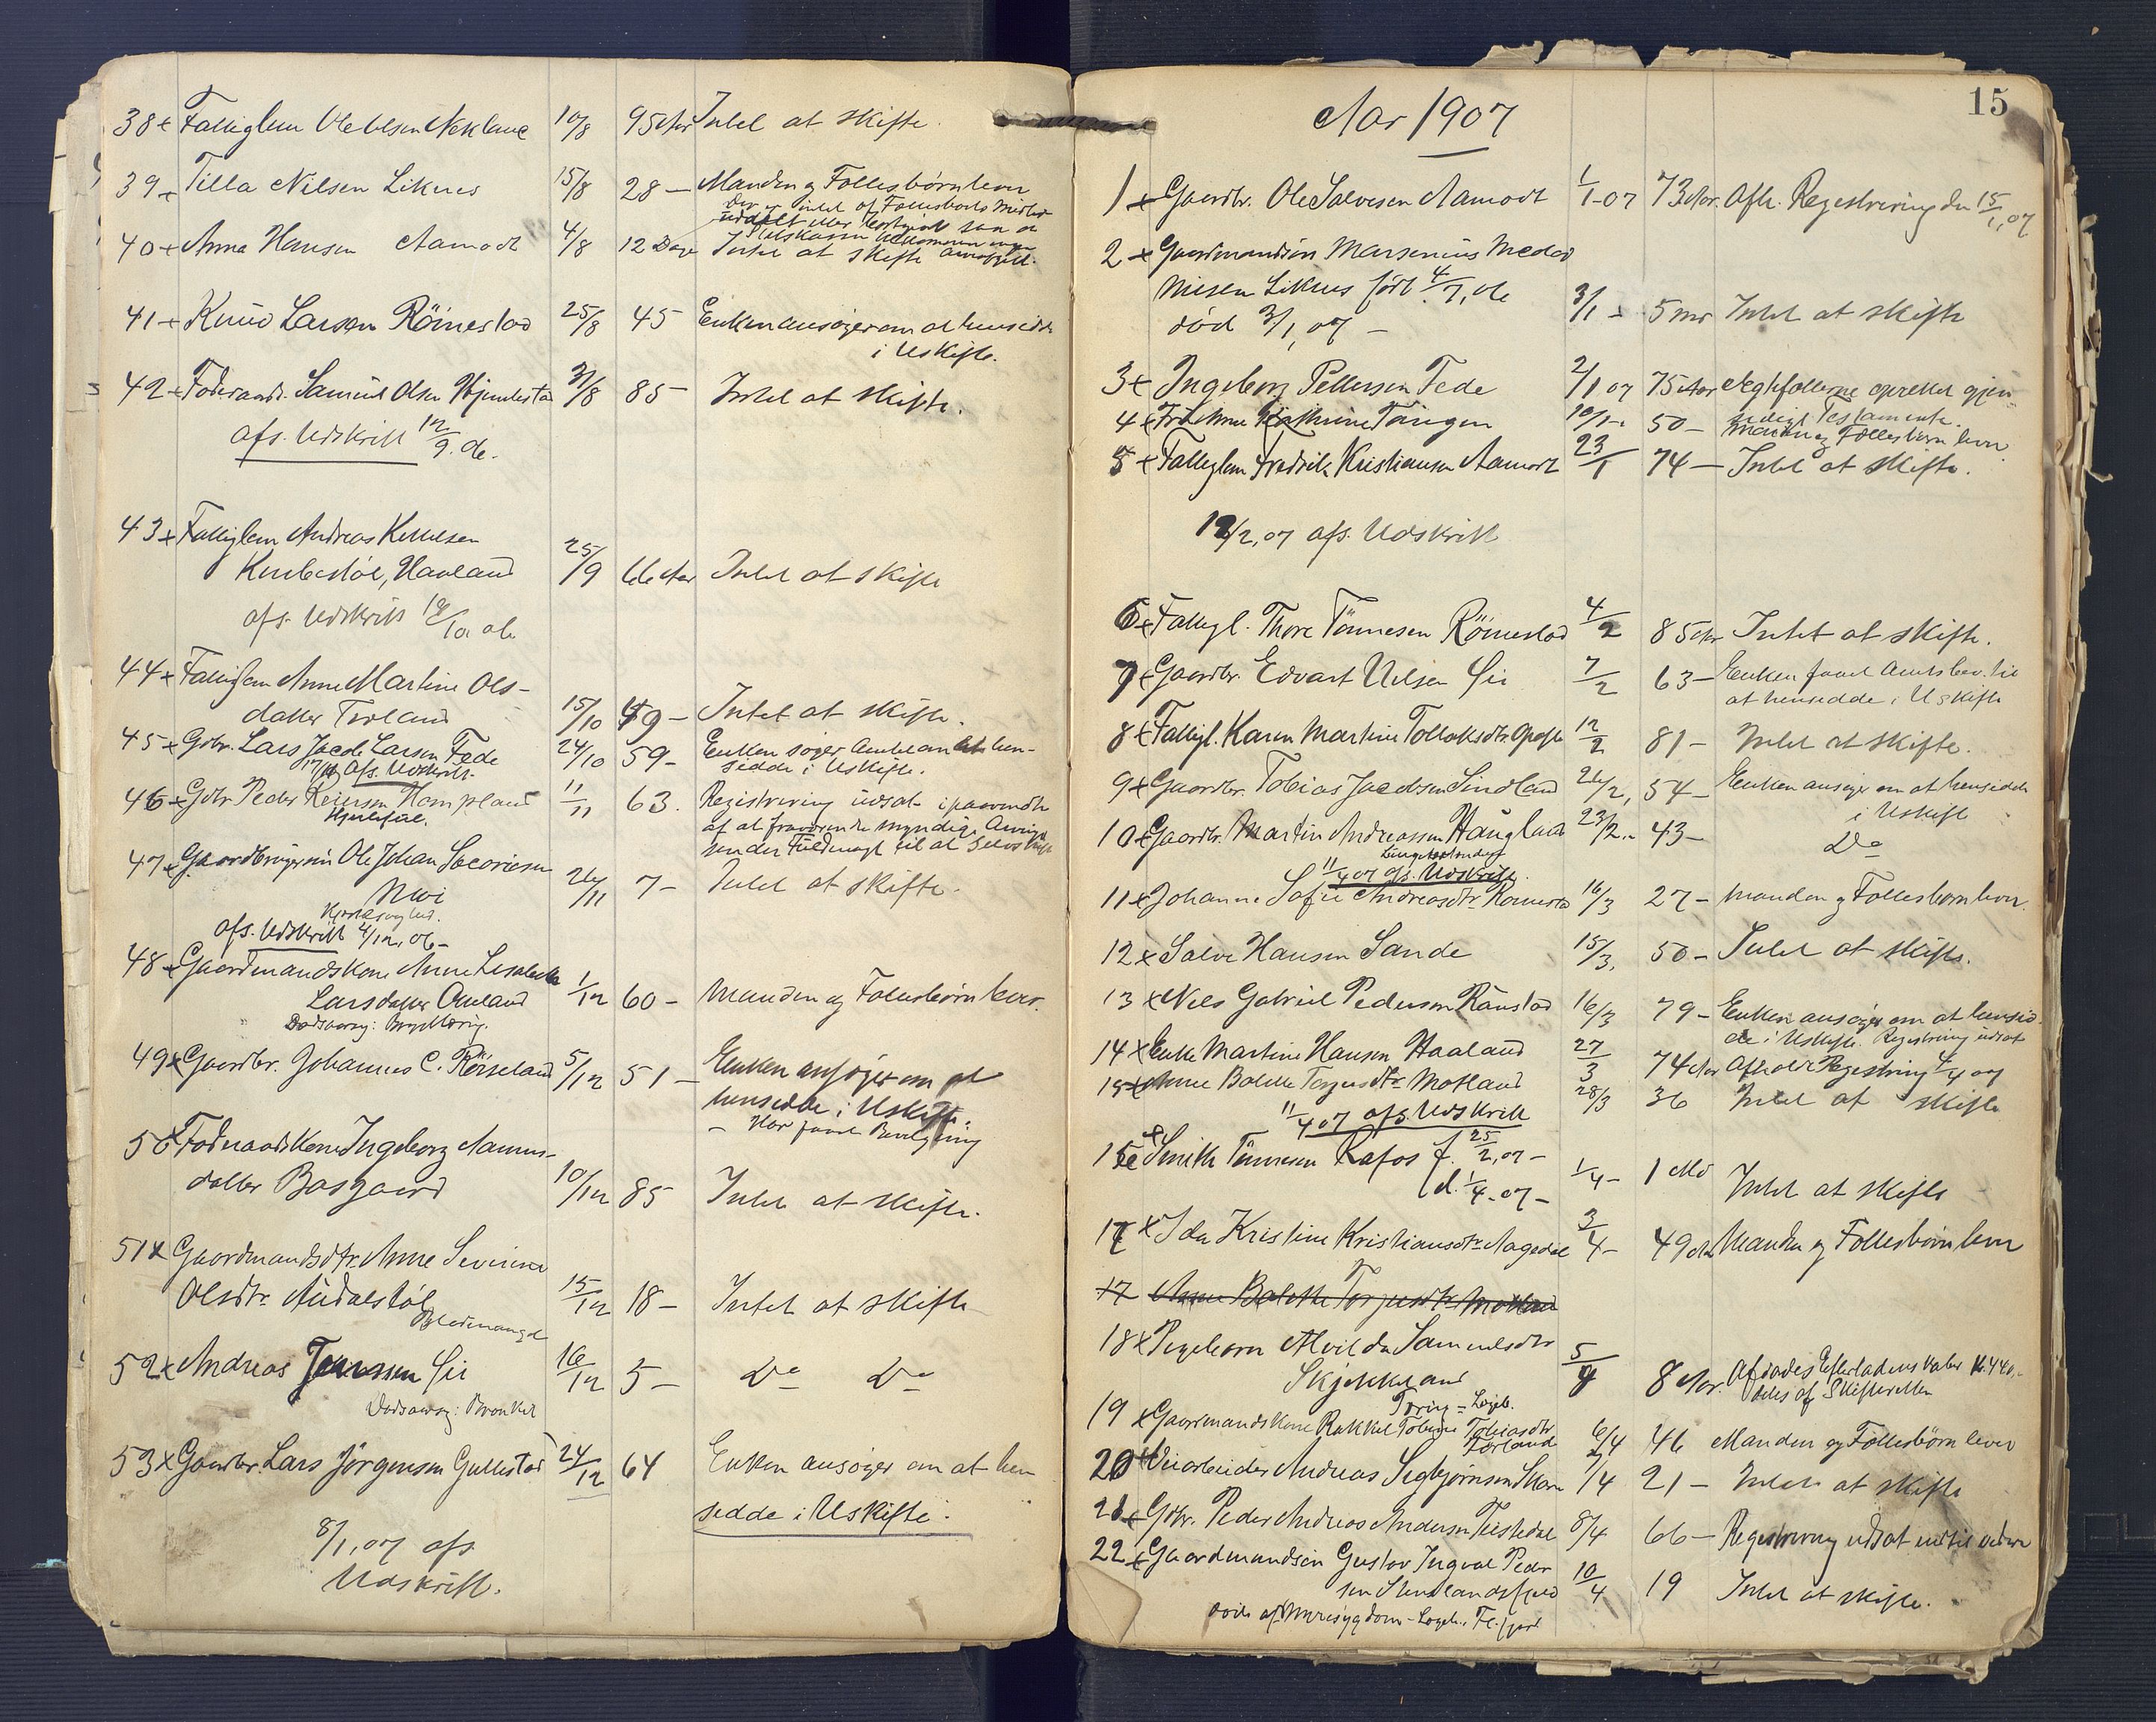 38 x Fattiglem Ole Olsen Nekland 10/8 95 Aar Intet at skifte.
39 x Tilla Nilsen Liknes 15/8 28 – Manden og Fællesbørn lever
Der er intet af Fællesboets Midler
uddelt eller
40 x Anna Hansen Aamodt 4/8 12 Dage Intet at skifte
41 x Knud Larsen Röinestad 25/8 45 Enken ansøger om at hensidde
i Uskifte.
42 x Føderaadsm. Samuel Olsen 31/8 85 – Intet at skifte.
afs. Udskrift 12/9. 06.
43 x Fattiglem Andreas Ketilsen
Haaland 25/9 66 Aar Intet at skifte
afs. Udskrift 10/10. 06
44 x Fattiglem Anne Martine Ols-
datter Troland 15/10 49 – Intet at skifte.
45 x Gdbr. Lars Jacob Larsen Fede 24/10 59 – Enken søger Amtet om at hen-
sidde i Uskifte.
afs. Udskrift.
46 x Gdbr. Peder Reiersen 11/11 63. Registrering udsat i paavente
af at fraværende myndige Arvinger
sender Fuldmagt til at
47 x Gaardbrugersøn Ole Johan
26/11 7 – Intet at skifte.
afs. Udskrift 4/12, 06 –
48 x Gaardmandskone Anne
Larsdatter Omland 1/12 60 – Manden og Fællesbørn lever.
Dødsaarsag:
49 x Gaardbr. Johannes C. Röiseland 5/12 51 – Enken ansøger om at
hensidde i Uskifte.
– Har faaet Bevilgning
50 x Føderaadskone Ingeborg Aanens-
datter Bosgaard 10/12 85 Intet at skifte.
51 x Gaardmandsdtr. Anne Severine
Olsdtr. Audalstøl 15/12 18 – Intet at skifte
52 x Andreas Jensen Gi 16/12 5 – Do Do
Dødsaarsag: Bronkit
53 x Gaardbr. Lars Jørgensen Gullestad 24/12 64 Enken ansøger om at hen
sidde i Uskifte.
8/1, 07 afs.
Udskrift.
15
Aar 1907
1 x Gaardbr. Ole Salvesen Aamodt 1/1-07 73 Aar. Afh. Registrering den 15/1, 07
2 x Gaardmandssøn Marsenius
Liknes født 4/7, 06
død 3/1, 07 – 3/1 – 5 mdr Intet at skifte
3 x Ingeborg Pettersen Fede 2/1 07 75 Aar Ægtefollerne oprettet gjen-
sidigt Testamente.
4 x Kathrine Tangen 10/1 – 50 – Manden og Fællesbørn lever
5 x Fattiglem Fredrik Kristiansen Aamodt 23/1 74 – Intet at skifte.
12/2, 07 afs. Udskrift
6 x Fattigl. Thore Tönnesen Röinestad 4/2 85 Aar Intet at skifte.
7 x Gaardbr. Edvart Nilsen Gi 7/2 63 – Enken faaet Amtsbev. til
at hensidde i Uskifte
8 x Fattigl. Karen Martine Tollaksdtr. 12/2 81 – Intet at skifte.
9 x Gaardbr. Tobias Jacobsen Sindland 26/2, 54 – Enken ansøger om at hensidde
i Uskifte
10 x Gaardbr. Martin Andreassen Haugland 23/2. 43 – Do
11/4 07 afs. Udskrift.
11 x Johanne Sofie Andreasdtr. Röinestad 16/3 27 – Manden og Fællesbørn lever.
12 x Salve Hansen Sande 15/3. 50 – Intet at skifte.
13 x Nils Gabriel Pedersen Raustad 16/3 79 – Enken ansøger om at hensid-
de i Uskifte. Registrering udsat
14 x Enke Martine Hansen Haaland 27/3 74 Aar Afholdt Registrering 4/4 07
15 x Anne Bolette Torjusdtr. Motland 28/3 36 Intet at skifte
11/4 07 afs. Udskrift
16 x Smith Tönnesen Rafos f. 25/2, 07 –
d. 1/4 – 07 – 1/4 – 1 Md Intet at skifte
17 x Ida Kristine Kristiansdtr. Aagedal 3/4 – 49 Aar Manden og Fællesbørn lever
17 Anne Bolette Torjusdtr. Motland
18 x Pigebarn Alvilda Samuelsdtr
Skjekkeland 5/4 8 Aar. Afdødes Efterladenskaber Kr. 440,-
deles af Skifteretten
19 x Gaardmandskone Rakkel Tobine Tobiasdtr
Förland 6/4 46 Manden og Fællesbörn lever
20 x Veiarbeider Andreas Segbjørnsen 7/4 21 – Intet at skifte
21 x Gdbr. Peder Andreas Andersen Tjestedal 8/4 66 – Registrering udsat indtil videre
22 x Gaardmandssøn Gustav Ingval Peder
sen 10/4 19 Intet at skifte.
døde af Nyresygdom –